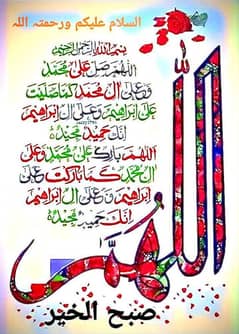 السلام عليكم ورحمتہ اللہ
بسم الله الرحمن الرحيم
اللهم صل على محمد
وعلى آل محمد كما صليت
على إبراهيم وعلى آل إبراهيم
إنك حميد مجيد
اللهم بارك على محمد وعلى
آل محمد كما باركت على
إبراهيم وعلى آل إبراهيم
إنك حميد مجيد
اللهم
صبح الخير